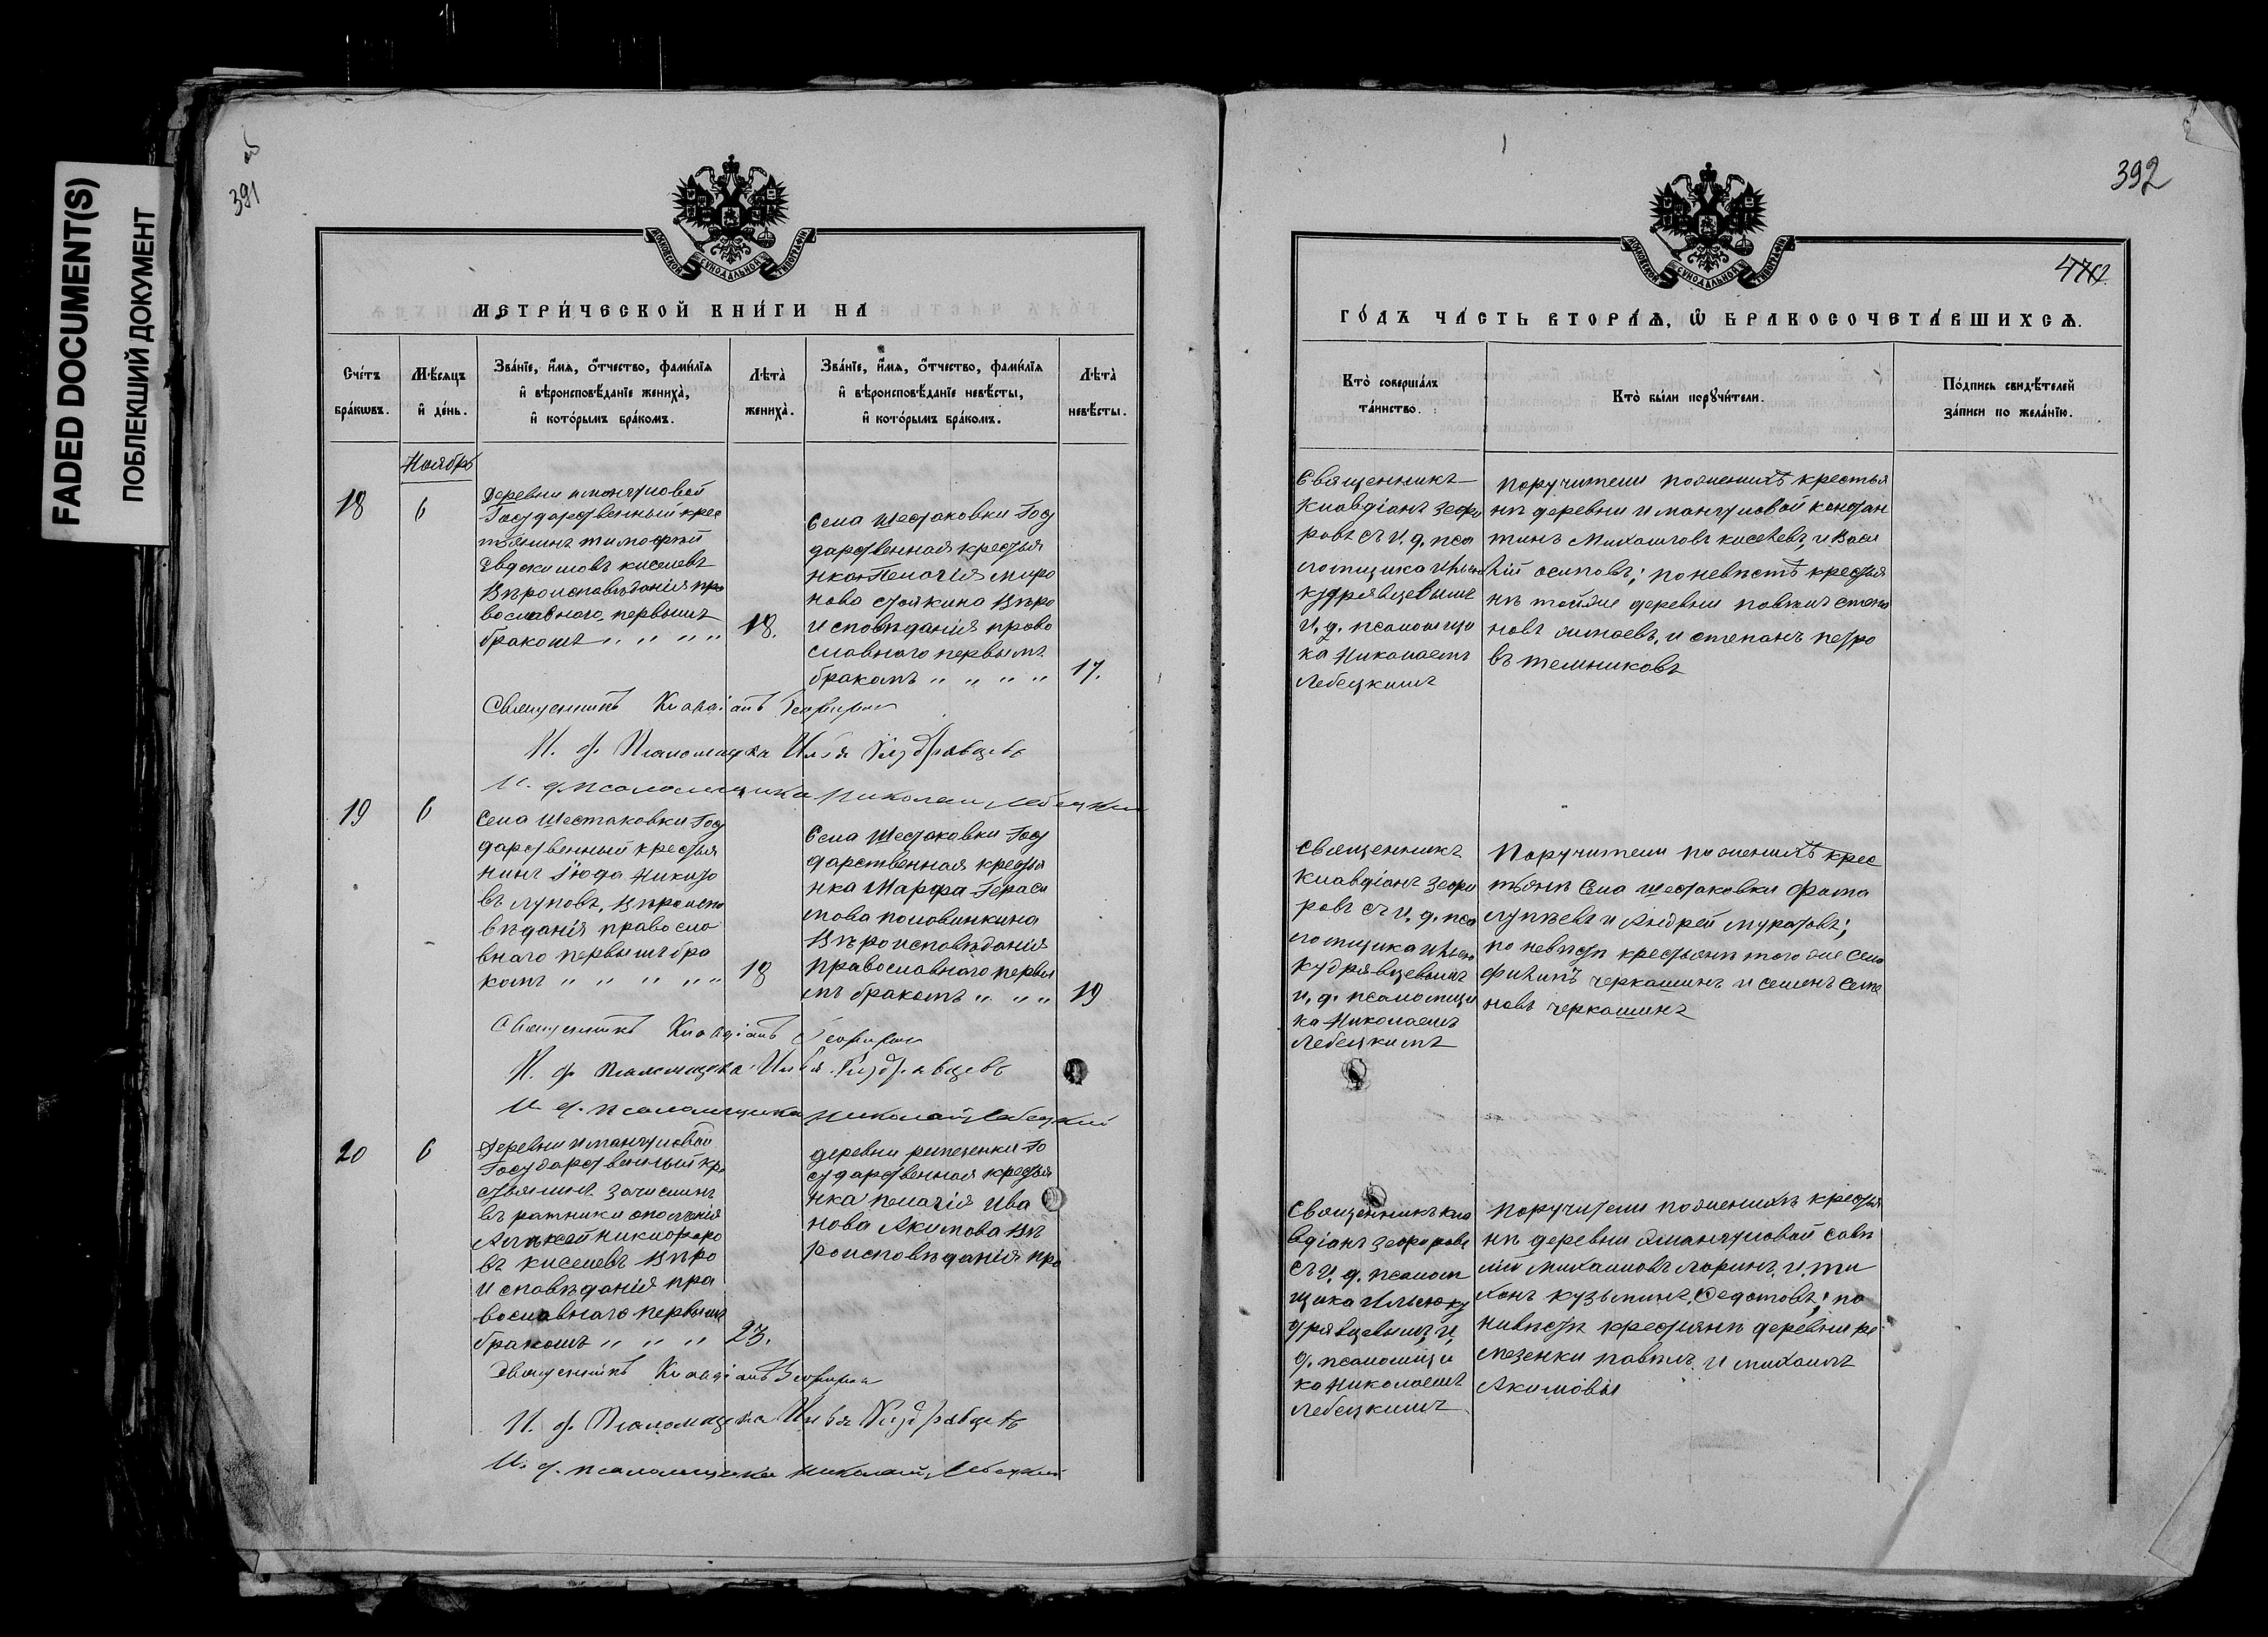 FADED DOCUMENT(S)
ПОБЛЕКШИЙ ДОКУМЕНТ
391 об
МОСКОВСКОЙ СѴНОДАЛЬНОЙ ТИПОГРАФІИ
МЕТРИ́ЧЕСКОЙ КНИ́ГИ НА
Сче́тъ бра́кѡвъ.
Мѣ́сяцъ и҆ де́нь.
Зва́нїе, и҆́мѧ, ѻ҆́тчество, фами́лїѧ
и҆ вѣроисповѣ́данїе жениха̀,
и҆ кото́рымъ бра́комъ.
Лѣ́та̀ жениха̀.
Зва́нїе, и҆́мѧ, ѻ҆́тчество, фами́лїѧ
и҆ вѣроисповѣ́данїе невѣ́сты,
и҆ кото́рымъ бра́комъ.
Лѣ́та̀ невѣ́сты.
Ноябрь
18
6
Деревни имангуловой
Государственный крес
тьянинъ тимофѣй
Евдокимовъ киселевъ
Вѣроисповѣданія пра
вославнаго, первымъ
бракомъ „ „ „ „
18.
Села Шестаковки Госу
дарственная крестья
нка Пелагія миро
нова стойкина Вѣро
исповѣданія право
славнаго первымъ
бракомъ „ „ „ „
17.
Священникъ Клавдіанъ
И. д. Псаломщика Илья Кудрявцевъ
И. д. псаломщика николай Лебецкій
19
6
Села Шестаковки Госу
дарственный крестья
нинъ Іюда
въ луповъ, Вѣроиспо
вѣданія правосла
внаго первымъ бра
комъ „ „ „ „ „
18
Села Шестаковки Госу
дарственная крестья
нка Марфа Гераси
мова половинкина
Вѣроисповѣданія
Православнаго первы
мъ бракомъ „ „ „
19
Священникъ Клавдіанъ
И. д. псаломщика Илья Кудрявцевъ
И. д. псаломщика николай Лебецкій
20
6
Деревни имангуловой
Государственный кре
стьянинъ зачислинъ
въ ратники ополченія
Алѣксѣй Никифоро
въ киселевъ Вѣро
исповѣданія пра
вославнаго первымъ
бракомъ „ „ „
23.
деревни репезенки Го
сударственная крестья
нка пелагія Ива
нова Акимова Вѣ
роисповѣданія пра
Священникъ Клавдіанъ
И. д. Псаломщика Илья Кудрявцевъ
И. д. псаломщика николай Лебецкій
392
МОСКОВСКОЙ СѴНОДАЛЬНОЙ ТИПОГРАФІИ
ГО́ДЪ ЧА́СТЬ ВТОРА́Ѧ, Ѡ҆ БРАКОСОЧЕТА́ВШИХСѦ.
Кто̀ соверша́лъ та́инство.
Кто̀ бы́ли порꙋчи́тели.
По́дпись свидѣ́телей за́писи по жела́нїю.
Священникъ
Клавдіанъ зефи
ровъ съ и. д. пса
ломщика Ильею
кудрявцевымъ
и. д. псаломщи
ка Николаемъ
Лебецкимъ
поручители по женихѣ крестья
нѣ деревни имангуловой констан
тинъ Михаиловъ киселевъ, и Васи
лій осиповъ; по невѣстѣ крестья
нѣ тойже деревни павилъ степа
новъ и степанъ петро
въ темниковъ
священникъ
Клавдіанъ зефи
ровъ съ и. д. пса
ломщика Ильею
кудрявцевымъ
и. д. псаломщи
ка Николаемъ
Лебецкимъ
Поручители по женихѣ крес
тьянѣ села шестаковки фома
лупѣевъ и Андрей муратовъ;
по невѣсты крестьянѣ того же села
филипъ черкашинъ и семенъ семе
новъ черкашинъ
Священникъ Кла
вдіанъ зефировъ
съ и. д. псалом
щика Ильею ку
дрявцевымъ и
д. псаломщи
ка николаемъ
Лебецкимъ
поручители по женихѣ крестья
нѣ деревни имангуловой савѣ
лій михаиловъ ларинъ и ти
хонъ кузьминъ Федотовъ; по
нивѣсты крестьянѣ деревни ре
пезенки павилъ и михаилъ
Акимовы